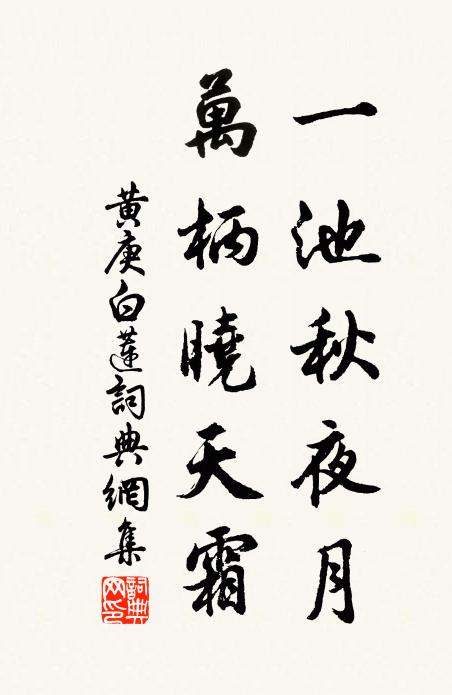 一池秋夜月
萬柄曉天霜
黃庚白蓮詞典網集
詞典網印